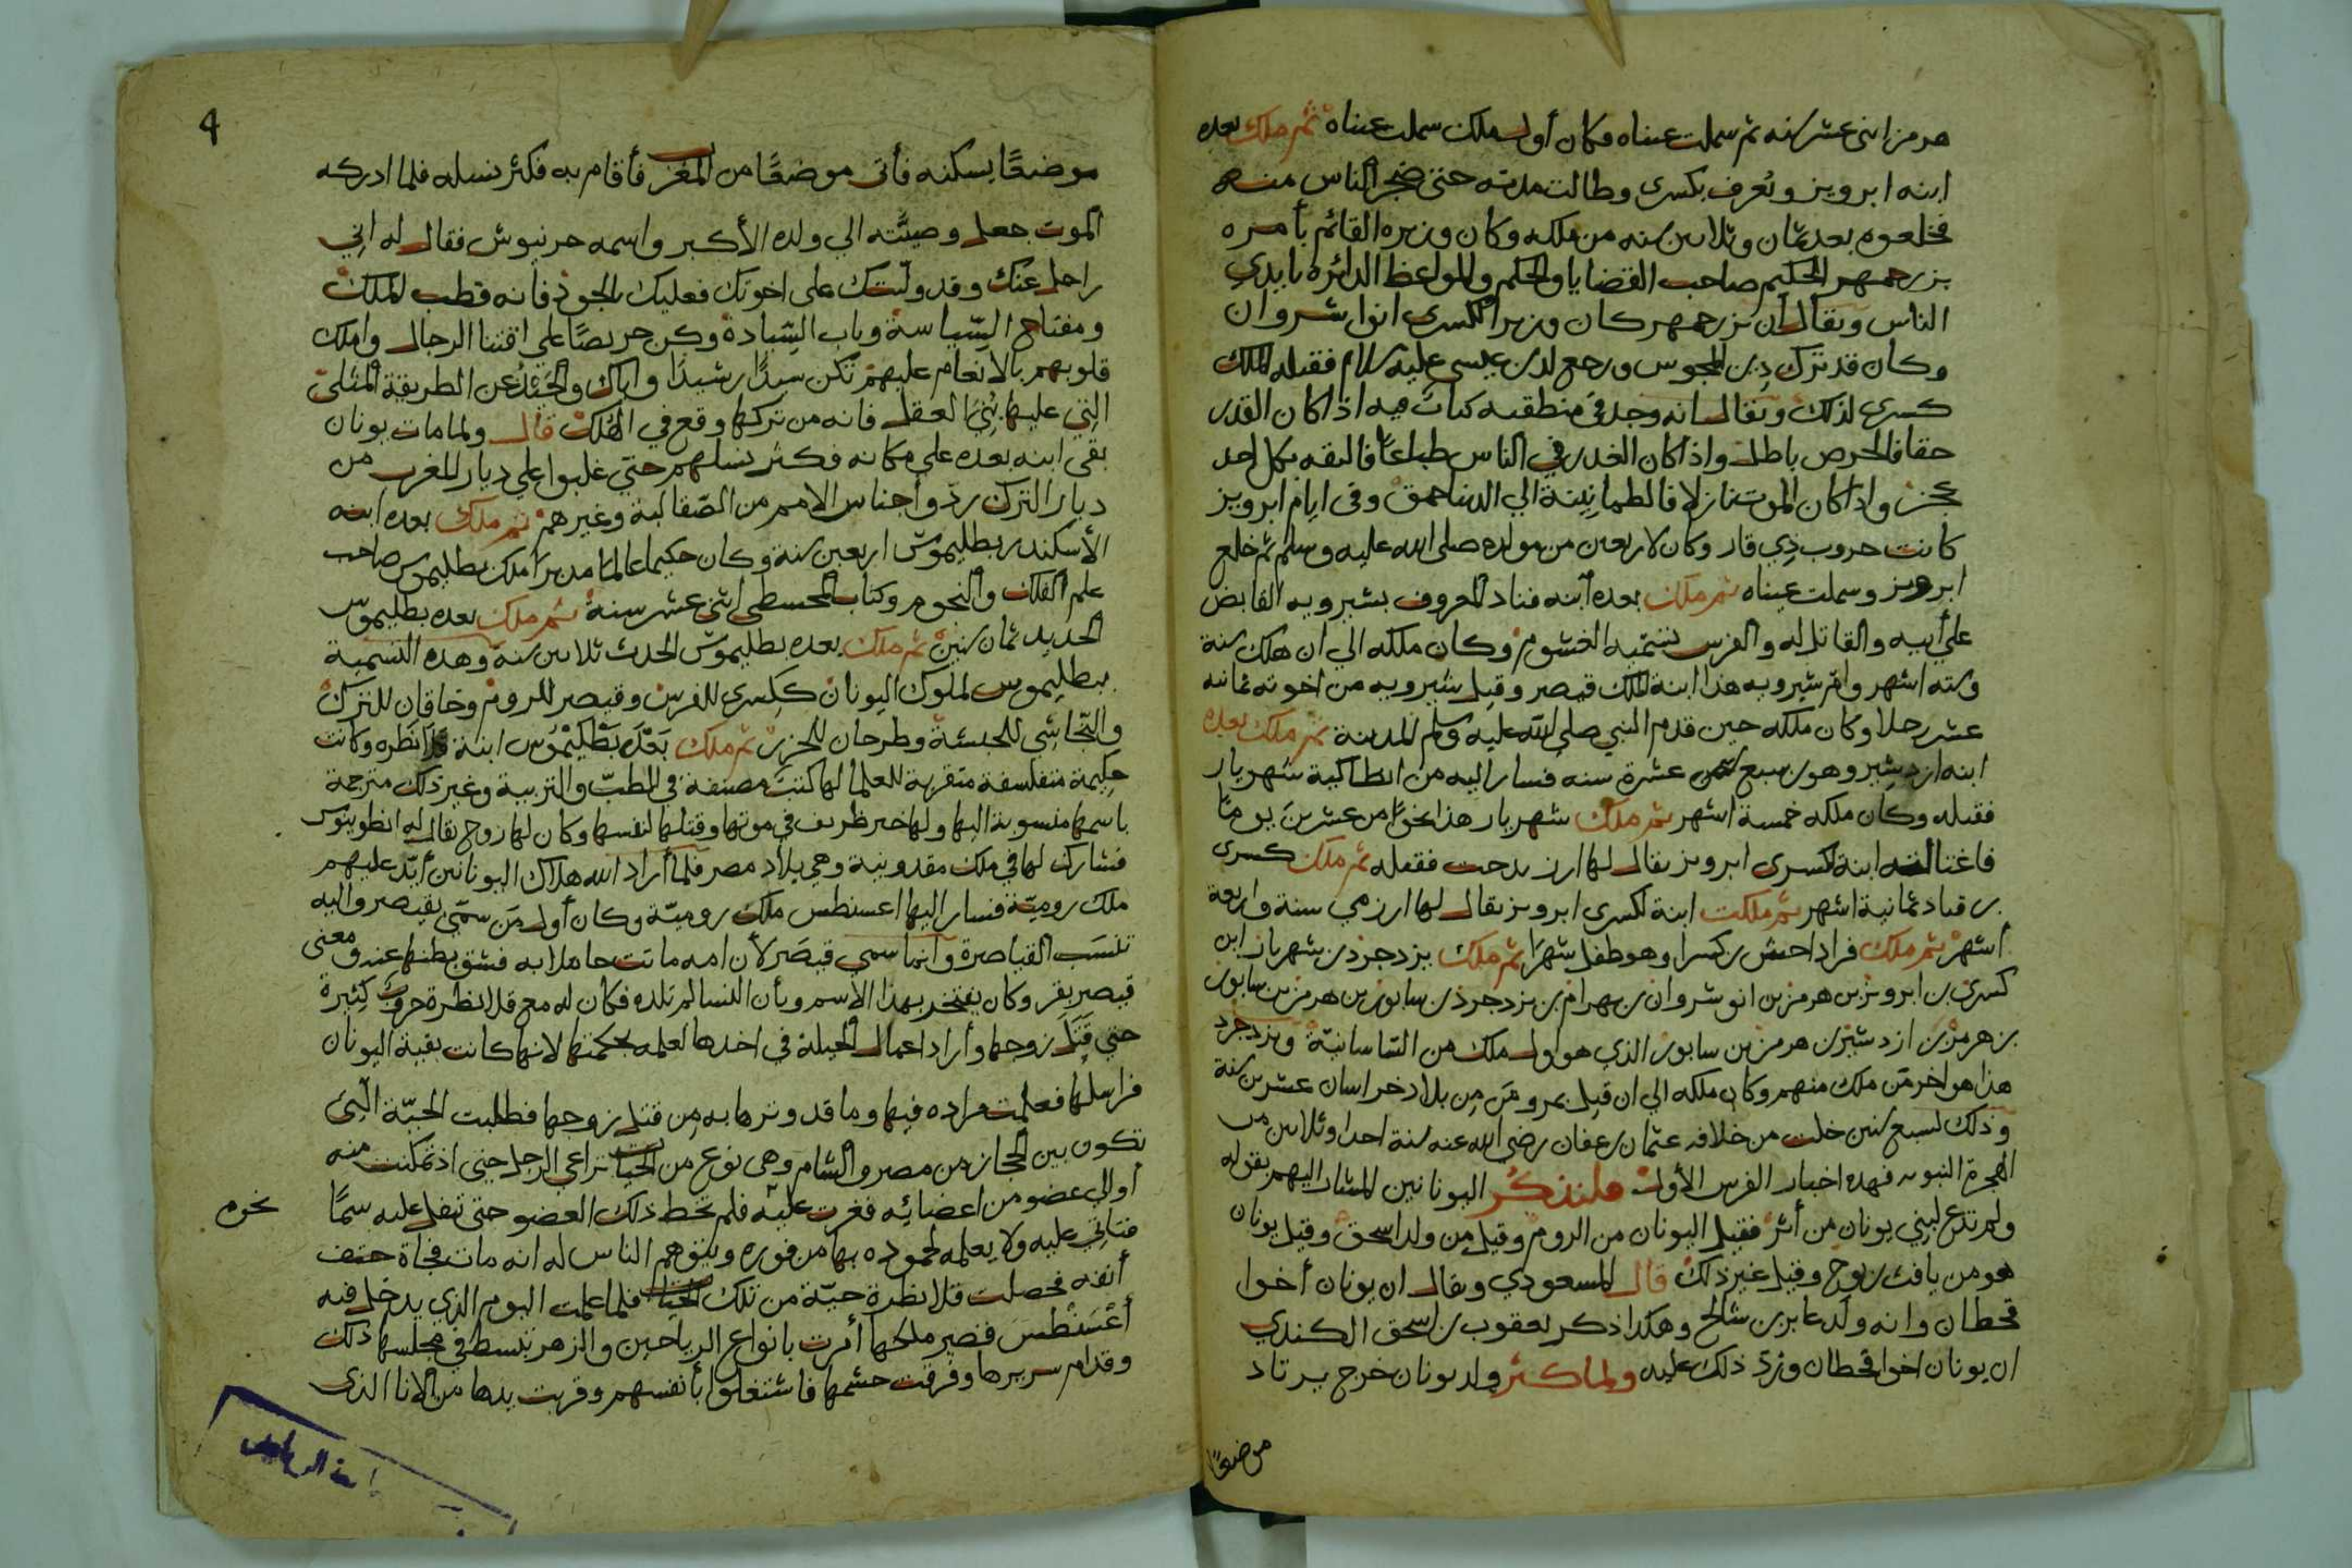 هرمز اثنى عشر سنه ثم سملت عيناه فكان أول ملك سملت عيناه ثم ملك بعده
ابنه ابرويز ويُعرف بكسرى وطالت مدته حتى ضجر الناس منه
فخلعوه بعد ثمان وثلاثين سنه من ملكه وكان وزيره القائم بأمره
بزرجمهر الحكيم صاحب القضايا والحكم والمواعظ الدائره بايدي
الناس ويقال ان بزرجمهر كان وزيرا لكسرى انوا شروان
وكان قد ترك دين المجوس ورجع لدين عيسى عليه سلام فقتله الملك
كسرى لذلك ويقال انه وجد في منطقته كتاب فيه اذا كان القدر
حقا فالحرص باطل واذا كان الغدر في الناس طباعًا فالثقه بكل احد
عجز واذا كان الموت نازلا فالطمانينة الي الدنيا حمق وفى ايام ابرويز
كانت حروب ذي قار وكان لاربعين من مولده صلى الله عليه وسلم ثم خلع
ابرويز وسملت عيناه ثم ملك بعده ابنه قباد المعروف بشيرويه القابض
علي أبيه والقاتل له والفرس تسميه الغشوم وكان ملكه الي ان هلك سنة
وسته اشهر وام شيرويه هذا ابنة الملك قيصر وقتل شيرويه من اخوته ثمانيه
عشر رجلا وكان ملكه حين قدم النبي صلى الله عليه وسلم المدينة ثم ملك بعده
ابنه ازدشير وهو بن سبع عشرة سنه فسار اليه من انطاكية شهريار
فقتله وكان ملكه خمسة اشهر ثم ملك شهريار هذا نحوًا من عشرين يومًا
فاغتالته ابنة كسرى ابرويز يقال لها ارزيدحت فقتله ثم ملك كسرى
بن قباد ثمانية اشهر ثم ملكت ابنة لكسرى ابرويز يقال لها ارزمي سنة واربعة
أشهر ثم ملك فراداحش بن كسرا وهو طفل شهرا ثم ملك يزدجرد بن شهريار ابن
كسرى بن ابرويز بن هرمز بن انوشروان بن بهرام بن يزدجرد بن سابور بن هرمز بن سابور
بن هرمز بن ازدشير بن هرمز بن سابور الذي هو اول ملك من الساسانية ويزدجرد
هذا هو اخر من ملك منهم وكان ملكه الي ان قتل بمرو من بلاد خراسان عشرين سنة
وذلك لسبع سنين خلت من خلافه عثمان بن عفان رضي الله عنه سنة احدا وثلاثين من
الهجرة النبويه فهذه اخبار الفرس الأولى فلنذكر اليونانين المشار اليهم بقوله
ولم تدع لبني يونان من أثر فقيل اليونان من الروم وقيل من ولد اسحق وقيل يونان
هو من يافث بن نوح وقيل غير ذلك قال المسعودي ويقال ان يونان أخوا
قحطان وانه ولد عابر بن شالخ وهكذا ذكر يعقوب بن اسحق الكندي
ان يونان اخوا قحطان ورد ذلك عليه ولما كثر ولد يونان خرج يرتاد
موضعًا
4
موضعًا يسكنه فأتى موضعًا من المغرب فأقام به فكثر نسله فلما ادركه
الموت جعل وصيته الي ولده الأكبر واسمه حرنبوش فقال له اني
راحل عنك وقد وليتك على اخوتك فعليك بالجود فانه قطب الملك
ومفتاح السياسة وباب السيادة وكن حريصًا علي اقتنا الرجال واملك
قلوبهم بالانعام عليهم تكن سيدًا رشيدًا واياك والحَيْد عن الطريقة المثلى
التي عليها بُنِيَ العقل فانه من تركها وقع في الهلك قال ولما مات يونان
بقى ابنه بعده علي مكانه فكثر نسلهم حتي غلبوا علي ديار المغرب من
ديار الترك ردّوا جناس الامم من الصقالبة وغيرهم ثم ملك بعده ابنه
الأسكندر بطليموس اربعين سنة وكان حكيما عالما مدبرا ملك بطليموس صاحب
علم الفلك والنجوم وكتاب المجسطى اثنى عشر سنة ثم ملك بعده بطليموس
الحديد ثمان سنين ثم ملك بعده بطليموس الحدث ثلاثين سنة وهذه التسمية
ببطليموس لملوك اليونان ككسرى للفرس وقيصر للروم وخاقان للترك
والنجاشي للحبشة وطرحان للخزر ثم ملك بَعْدَ بَطْلَيْمُوس ابنة قلانطره وكانت
حكيمة متفلسفة مقربة للعلما لها كتب مصنفة في الطب والتربية وغير ذلك مترجمة
باسمها منسوبة اليها ولها خبر ظريف في موتها وقتلها لنفسها وكان لها زوج يقال له انطونيوس
فشارك لها في ملك مقدونية وهي بلاد مصر فلما أراد الله هلاك اليونانين أيّد عليهم
ملك روميّة فسار اليها اعسنطس ملك روميّة وكان أول من سمّي بقيصر واليه
تنسب القياصرة وانما سمي قيصر لأن امه ماتت حاملا به فشق بطنها عنه ومعنى
قيصر بقر وكان يفتخر بهذا الأسم وبأن النسا لم تلده فكان له مع قلانطرة حروب كثيرة
حتي قتل زوجها وأراد اعمال الحيلة في اخذها لعلمه بحكمتها لانها كانت بقية اليونان
فراسلها فعلمت مراده فيها وما قد وترها به من قتل زوجها فطلبت الحيّة التي
تكون بين الحجاز من مصر والشام وهي نوع من الحيات تراعي الرجل حتي اذ تمكنت منه
أوالي عضو من اعضائه فغرت عليه فلم تخط ذلك العضو حتى تتفل عليه سمًا
نخرم
فتاتي عليه ولا يعلمه لخموده بها من فوره ويتوهم الناس له انه مات فجاة حتف
أنفه فحصلت قلانطرة حيّة من تلك الحيات فلما علمت اليوم الذي يدخل فيه
أغْسَنْطُسَ قصر ملكها أمرت بانواع الرياحين والزهر تبسط في مجلسها ذلك
وقدام سريرها وفرقت حشمها فاشتغلوا بأنفسهم وقربت يدها من الانا الذى